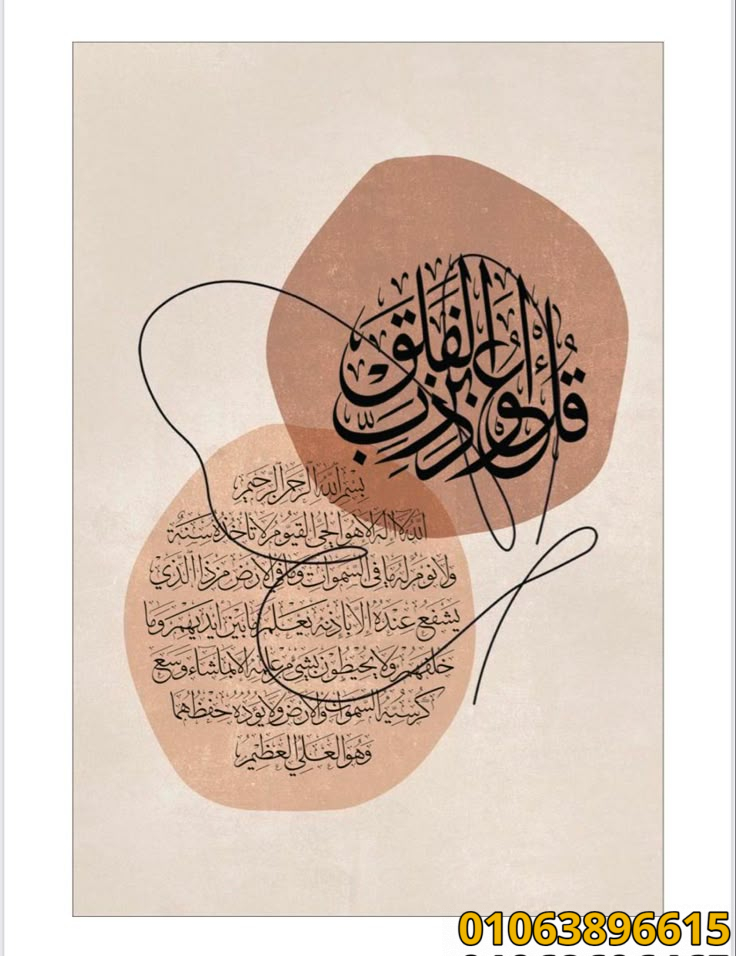 قل أعوذ برب الفلق
بسم الله الرحمن الرحيم
الله لا إله الا هو الحي القيوم لا تأخذه سنة
ولا نوم له ما في السموات وما في الارض من ذا الذي
يشفع عنده الا باذنه يعلم ما بين ايديهم وما
خلفهم ولا يحيطون بشيء من علمه الا بما شاء وسع
كرسيه السموات والارض ولا يؤده حفظهما
وهو العلي العظيم
01063896615